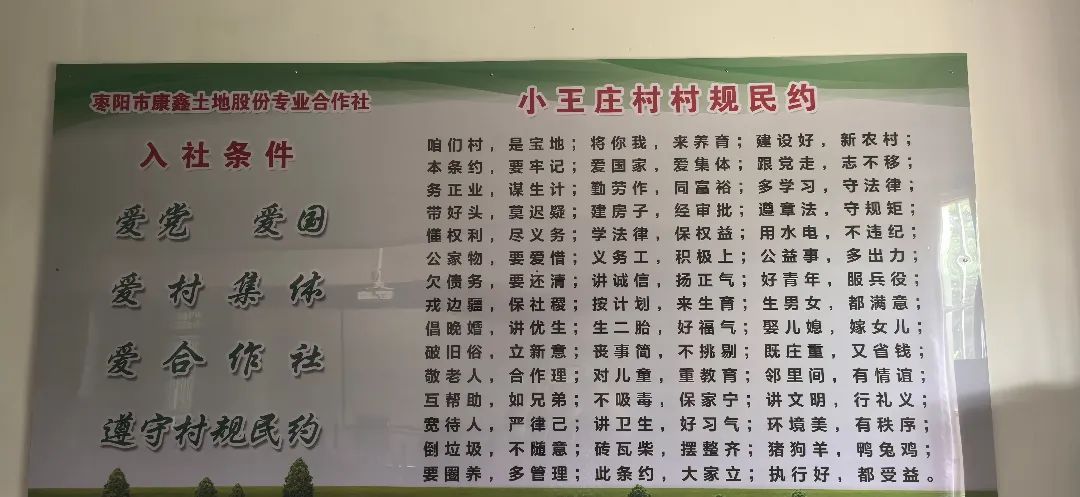 枣阳市康鑫土地股份专业合作社
入社条件
爱党 爱国
爱村集体
爱合作社
遵守村规民约
小王庄村村规民约
咱们村，是宝地；将你我，来养育；建设好，新农村；
本条约，要牢记；爱国家，爱集体；跟党走，志不移；
务正业，谋生计；勤劳作，同富裕；多学习，守法律；
带好头，莫迟疑；建房子，经审批；遵章法，守规矩；
懂权利，尽义务；学法律，保权益；用水电，不违纪；
公家物，要爱惜；义务工，积极上；公益事，多出力；
欠债务，要还清；讲诚信，扬正气；好青年，服兵役；
戎边疆，保社稷；按计划，来生育；生男女，都满意；
倡晚婚，讲优生；生二胎，好福气；娶儿媳，嫁女儿；
破旧俗，立新意；丧事简，不挑剔；既庄重，又省钱；
敬老人，合作理；对儿童，重教育；邻里间，有情谊；
互帮助，如兄弟；不吸毒，保家宁；讲文明，行礼义；
宽待人，严律己；讲卫生，好习气；环境美，有秩序；
倒垃圾，不随意；砖瓦柴，摆整齐；猪狗羊，鸭兔鸡；
要圈养，多管理；此条约，大家立；执行好，都受益。